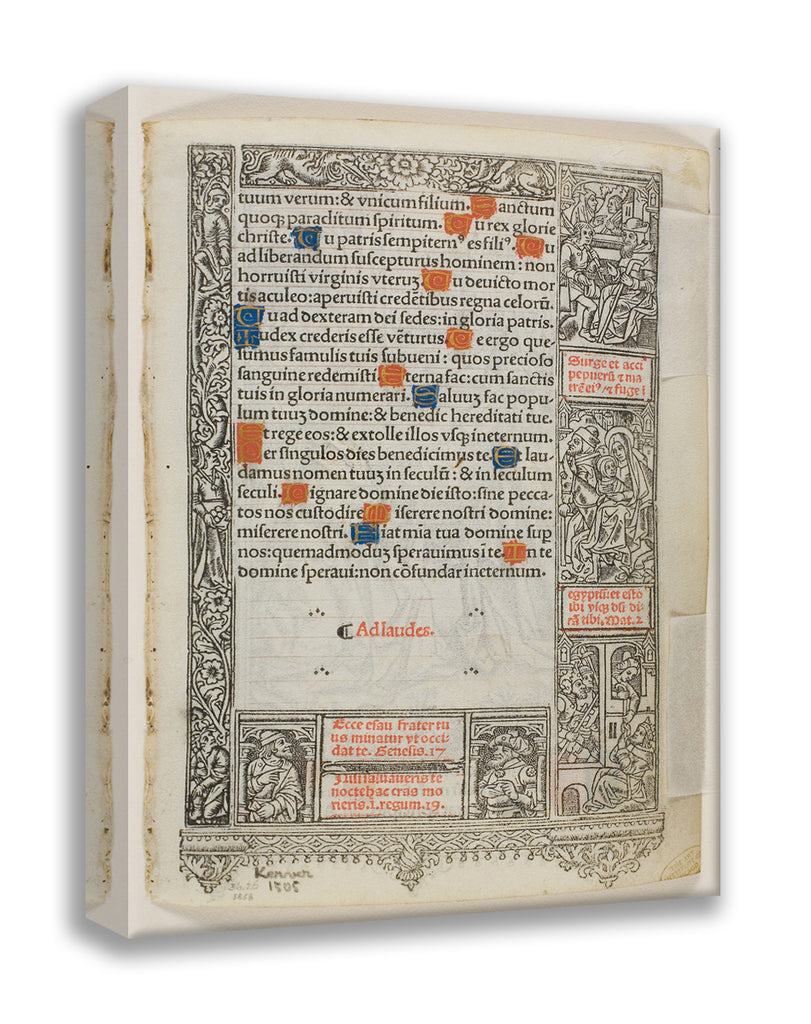 tuum verum: & vnicum filium. Sanctum
quoqꝫ paraclitum spiritum. Tu rex glorie
christe. Tu patris sempiternꝰ es filiꝰ. Tu
ad liberandum suscepturus hominem: non
horruisti virginis vteruꝫ. Tu deuicto mor
tis aculeo: aperuisti credētibus regna celorū.
Tu ad dexteram dei sedes: in gloria patris.
Iudex crederis esse vēturus. Te ergo que-
sumus famulis tuis subueni: quos precioso
sanguine redemisti. Eterna fac: cum sanctis
tuis in gloria numerari. Saluuꝫ fac popu-
lum tuuꝫ domine: & benedic hereditati tue.
Et rege eos: & extolle illos vsqꝫ in eternum.
Per singulos dies benedicimus te. Et lau-
damus nomen tuuꝫ in seculū: & in seculum
seculi. Dignare domine die isto: sine pecca-
to nos custodire. Miserere nostri domine:
miserere nostri. Fiat mīa tua domine sup
nos: quemadmoduꝫ sperauimus ī te. In te
domine speraui: non cōfundar in eternum.
¶ Ad laudes.
Surge et acci
pe puerū ⁊ ma
trē eiꝰ / ⁊ fuge ī
egyptū: et esto
ibi vsqꝫ dū di-
cā tibi. Mat. 2
Ecce esau frater tu
us minatur vt occi
dat te. Genesis. 17
Nisi saluaueris te
nocte hac cras mo
rieris. 1. regum. 19.
Kerver
1505